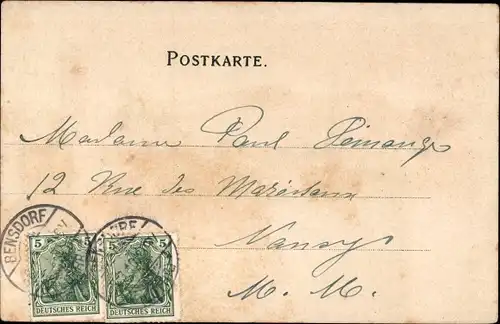 POSTKARTE.
Madame Paul
12 Rue des
Nancy
M. M.
BENSDORF
5 5 5 5
DEUTSCHES REICH DEUTSCHES REICH